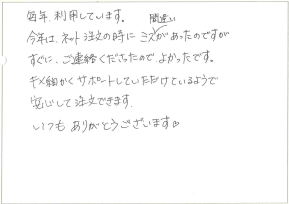 毎年、利用しています。
間違い
今年は、ネット注文の時に ミスがあったのですが
すぐに、ご連絡くださったので、よかったです。
キメ細かく サポートしていただけているようで
安心して注文できます。
いつも ありがとうございます♡